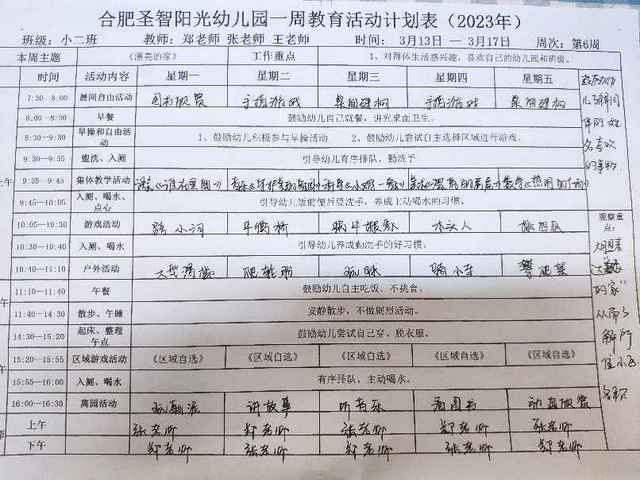 合肥圣智阳光幼儿园一周教育活动计划表（2023年）
班级：小二班 教师：郑老师 张老师 王老师 时间： 3月13日 — 3月17日 周次：第6周
本周主题 《漂亮的家》 工作重点 1、对群体生活感兴趣，喜欢自己的幼儿园和班级。
时间 活动内容 星期一 星期二 星期三 星期四 星期五
7:30-8:00 晨间自由活动 图书欣赏 手指游戏 桌间建构 手指游戏 桌间建构
8:00-8:30 早餐 鼓励幼儿自己就餐、讲究桌面卫生。
8:30-9:30 早操和自由活动 1、鼓励幼儿积极参与早操活动 2、鼓励幼儿尝试自主选择区域进行游戏。
9:30-9:35 盥洗、入厕 引导幼儿有序排队，勤洗手
9:35-9:45 集体教学活动
9:45-10:05 入厕、喝水、点心 引导幼儿饭前便后要洗手，养成主动喝水的习惯。
10:05-10:30 游戏活动 跨小河 平衡桥 木头人
10:30-10:40 入厕、喝水 引导幼儿养成勤洗手的好习惯。
10:40-11:10 户外活动 大型滑梯 骑小车
11:10-11:40 午餐 鼓励幼儿自主吃饭、不挑食。
11:40-14:30 散步、午睡 安静散步，不做剧烈活动。
14:30-15:20 起床、整理 午点 鼓励幼儿尝试自己穿、脱衣服。
15:20-15:55 区域游戏活动 《区域自选》 《区域自选》 《区域自选》 《区域自选》 《区域自选》
15:55-16:00 入厕、喝水 有序排队，主动喝水。
16:00-16:30 离园活动 讲故事 听音乐 看图书 动画欣赏
上午 张老师 郑老师 张老师 郑老师 张老师
下午 郑老师 张老师 郑老师 张老师 郑老师
观察重点：
的家”
从而了
解
名称